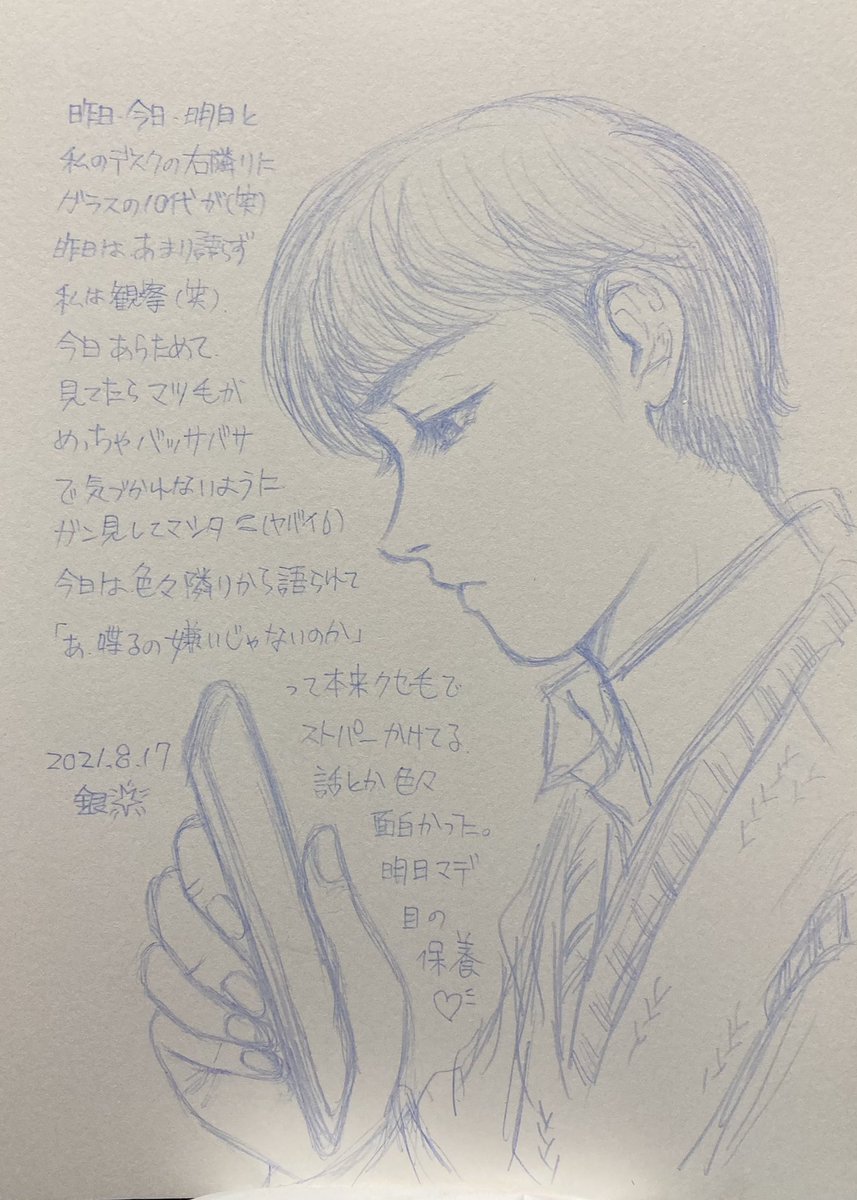 昨日・今日・明日と
私のデスクの右隣りに
ガラスの10代が(笑)
昨日はあまり語らず
私は観察(笑)
今日あらためて
見てたらマツ毛が
めっちゃバッサバサ
で気づかれないように
ガン見してマシタ(ヤバイ)
今日は色々隣りから語られて
「あ、喋るの嫌いじゃないのか」
って本来クセ毛で
ストパーかけてる
話とか色々
面白かった。
明日マデ
目の
保養
♡
2021.8.17
銀